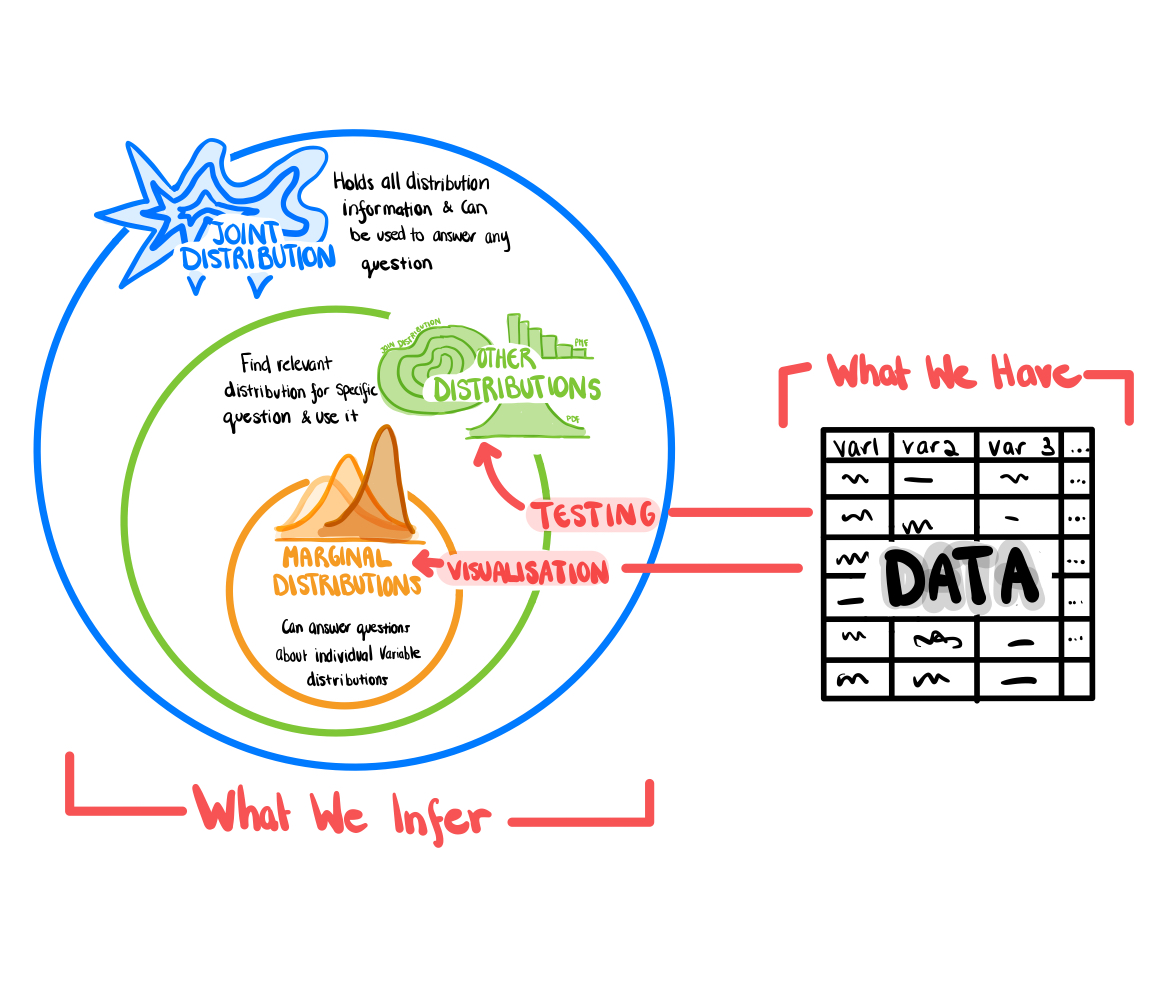 JOINT
DISTRIBUTION
Holds all distribution
information & can
be used to answer any
question
Find relevant
distribution for specific
question & use it
JOIN DISTRIBUTION
PMF
OTHER
DISTRIBUTIONS
PDF
MARGINAL
DISTRIBUTIONS
Can answer questions
about individual variable
distributions
TESTING
VISUALISATION
What We Infer
What We Have
var1 var2 var 3 ...
...
...
...
DATA
...
...